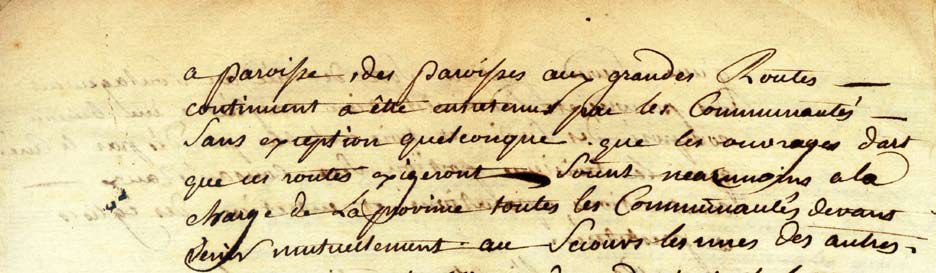 a paroisse, des paroisses aux grandes Routes —
continuent a être entretenus par les Communautés —
sans exception quelconque. que les ouvrages dart
que ces routes exigeront soient neanmoins a la
charge de La province toutes les Communautés devant
venir mutuellement au Secours les unes des autres.